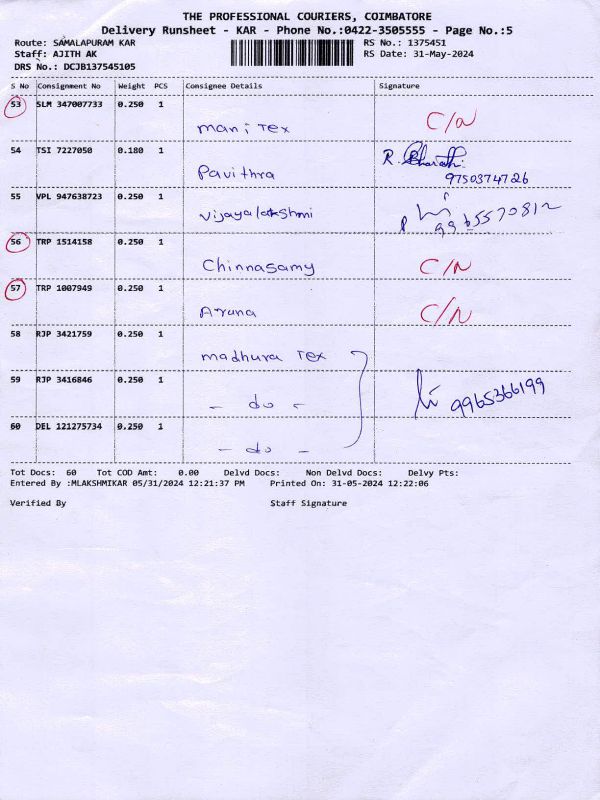 THE PROFESSIONAL COURIERS, COIMBATORE
Delivery Runsheet - KAR - Phone No.:0422-3505555 - Page No.:5
Route: SAMALAPURAM KAR
RS No.: 1375451
Staff: AJITH AK
RS Date: 31-May-2024
DRS No.: DCJB137545105
S No Consignment No Weight PCS Consignee Details Signature
53 SLM 347007733 0.250 1 Mani Tex C/N
54 TSI 7227050 0.180 1 Pavithra R. Bharathi
9750374726
55 VPL 947638723 0.250 1 Vijayalakshmi 9965570812
56 TRP 1514158 0.250 1 Chinnasamy C/N
57 TRP 1007949 0.250 1 Aruna C/N
58 RJP 3421759 0.250 1 Madhura Tex
59 RJP 3416846 0.250 1 - do - 9965366199
60 DEL 121275734 0.250 1 - do -
Tot Docs: 60 Tot COD Amt: 0.00 Delvd Docs: Non Delvd Docs: Delvy Pts:
Entered By :MLAKSHMIKAR 05/31/2024 12:21:37 PM Printed On: 31-05-2024 12:22:06
Verified By Staff Signature